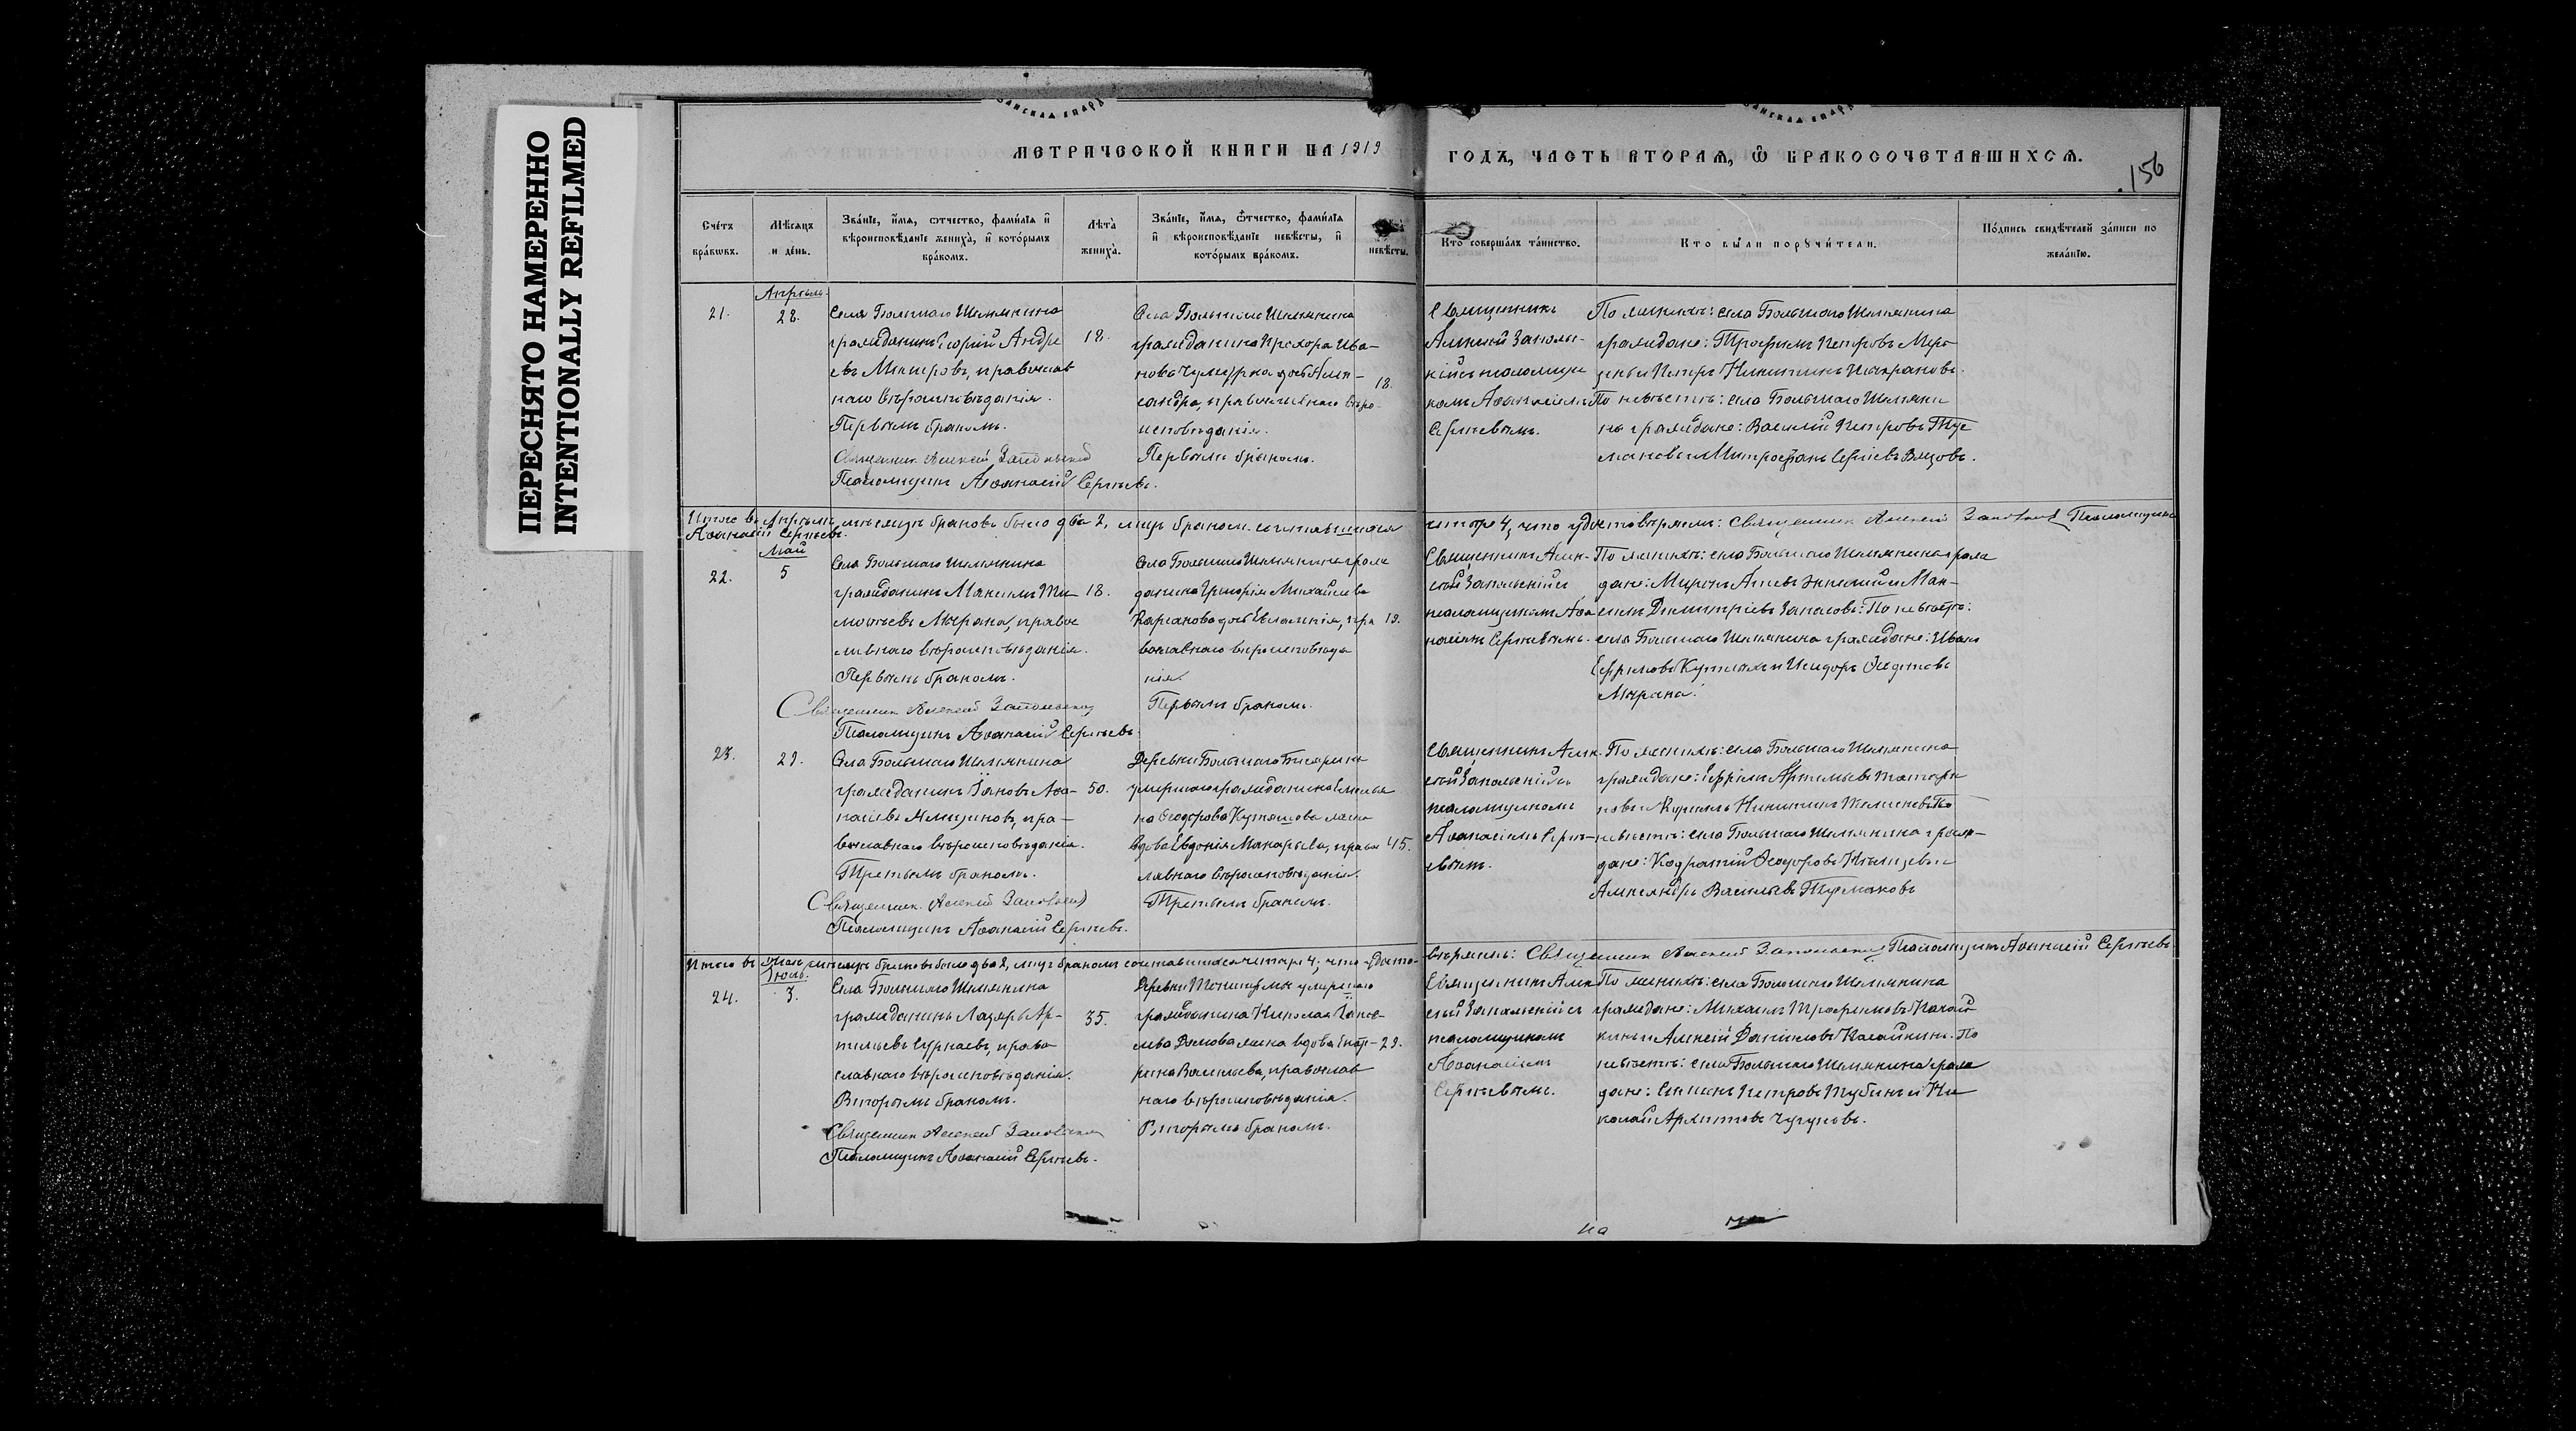 ПЕРЕСНЯТО НАМЕРЕННО
INTENTIONALLY REFILMED
МЕТРИЧЕСКОЙ КНИГИ НА 1919
ГОДЪ, ЧАСТЬ ВТОРАѦ, Ѿ БРАКОСОЧЕТАВШИХСѦ.
156
Сче́тъ бра́кωвъ.
Мѣ́сѧцъ и де́нь.
Зва́нїе, и́мѧ, ѻтчество, фами́лїѧ и вѣроисповѣ́данїе жениха̀, и кото́рымъ бра́комъ.
Лѣта̀ жениха̀.
Зва́нїе, и́мѧ, ѻ́тчество, фами́лїѧ и вѣроисповѣ́данїе невѣ́сты, и кото́рымъ бра́комъ.
невѣ́сты.
Кто̀ соверша́лъ та́инство.
Кто бы́ли порꙋчи́тели.
По́дпись свидѣ́телей за́писи по жела́нїю.
21.
Апрѣль.
28.
Села Большого Шемякина
гражданинъ Георгій Андре
евъ Митровъ, православ
наго вѣроисповѣданія.
Первымъ бракомъ.
Священникъ Алексій Запольскій
Псаломщикъ Аѳанасій Сергѣевъ.
18.
Села Большого Шемякина
гражданина Прохора Ива-
нова дочь Алек-
сандра, православнаго вѣро-
исповѣданія.
Первымъ бракомъ.
18.
Священникъ
Алексій Заполь-
скій съ псаломщи
комъ Аѳанасіемъ
Сергѣевымъ.
По женихѣ: села Большого Шемякина
граждане: Трофимъ Петровъ
и Петръ Никитинъ
По невѣстѣ: села Большого Шемяки
на граждане: Василій Петровъ Тус
мановъ и Митрофанъ Сергѣевъ
Итого въ Апрѣлѣ мѣсяцѣ браковъ было два 2, лицъ бракомъ сочетавшихся
четыре 4, что удостовѣряемъ: Священникъ Алексій Запольскій Псаломщикъ
Аѳанасій Сергѣевъ.
22.
Май
5
Села Большого Шемякина
гражданинъ Максимъ Ти
моѳеевъ Мырана, право
славнаго вѣроисповѣданія.
Первымъ бракомъ.
Священникъ Алексій Запольскій
Псаломщикъ Аѳанасій Сергѣевъ.
18.
Села Большого Шемякина граж
данина Григорія Михайлова
дочь Евлампія, пра
вославнаго вѣроисповѣда
нія.
Первымъ бракомъ.
19.
Священникъ Алек-
сій Запольскій съ
псаломщикомъ Аѳа
насіемъ Сергѣевымъ.
По женихѣ: села Большого Шемякина граж
дане: Миронъ и Мак-
симъ Димитріевъ Запасовъ. По невѣстѣ:
села Большого Шемякина граждане: Иванъ
Ефремовъ и Исидоръ Ѳедотовъ
Мырана.
23.
29.
Села Большого Шемякина
гражданинъ Іаковъ Аѳа-
насіевъ Ямщиковъ, пра-
вославнаго вѣроисповѣданія.
Третьимъ бракомъ.
Священникъ Алексій Запольскій
Псаломщикъ Аѳанасій Сергѣевъ.
50.
Деревни Большого Бисярина
умершаго гражданина Емелья
на Ѳеодорова жена
вдова Евдокія Макарьева, право
славнаго вѣроисповѣданія.
Третьимъ бракомъ.
45.
Священникъ Алек-
сій Запольскій съ
псаломщикомъ
Аѳанасіемъ Сергѣ-
евымъ.
По женихѣ: села Большого Шемякина
граждане: Ефремъ Артемьевъ
и Никитинъ По
невѣстѣ: села Большого Шемякина граж-
дане: Кодратій Ѳеодоровъ и
Александръ Васильевъ Тусмаковъ
Итого въ Маѣ мѣсяцѣ браковъ было два 2, лицъ бракомъ сочетавшихся четыре 4; что удосто-
вѣряемъ: Священникъ Алексій Запольскій Псаломщикъ Аѳанасій Сергѣевъ.
24.
Іюль.
3.
Села Большого Шемякина
гражданинъ Лазарь Ар-
темьевъ Сурнаевъ, право
славнаго вѣроисповѣданія.
Вторымъ бракомъ.
Священникъ Алексій Запольскій
Псаломщикъ Аѳанасій Сергѣевъ.
35.
Деревни умершаго
гражданина Николая Іаков-
лева жена вдова Екате-
рина Васильева, православ
наго вѣроисповѣданія.
Вторымъ бракомъ.
29.
Священникъ Алек
сій Запольскій съ
псаломщикомъ
Аѳанасіемъ
Сергѣевымъ.
По женихѣ: села Большого Шемякина
граждане: Михаилъ Трофимовъ
и Алексій Даниловъ Касайкинъ. По
невѣстѣ: села Большого Шемякина граж
дане: Петровъ Тубинъ и Ни
колай Чугуновъ.